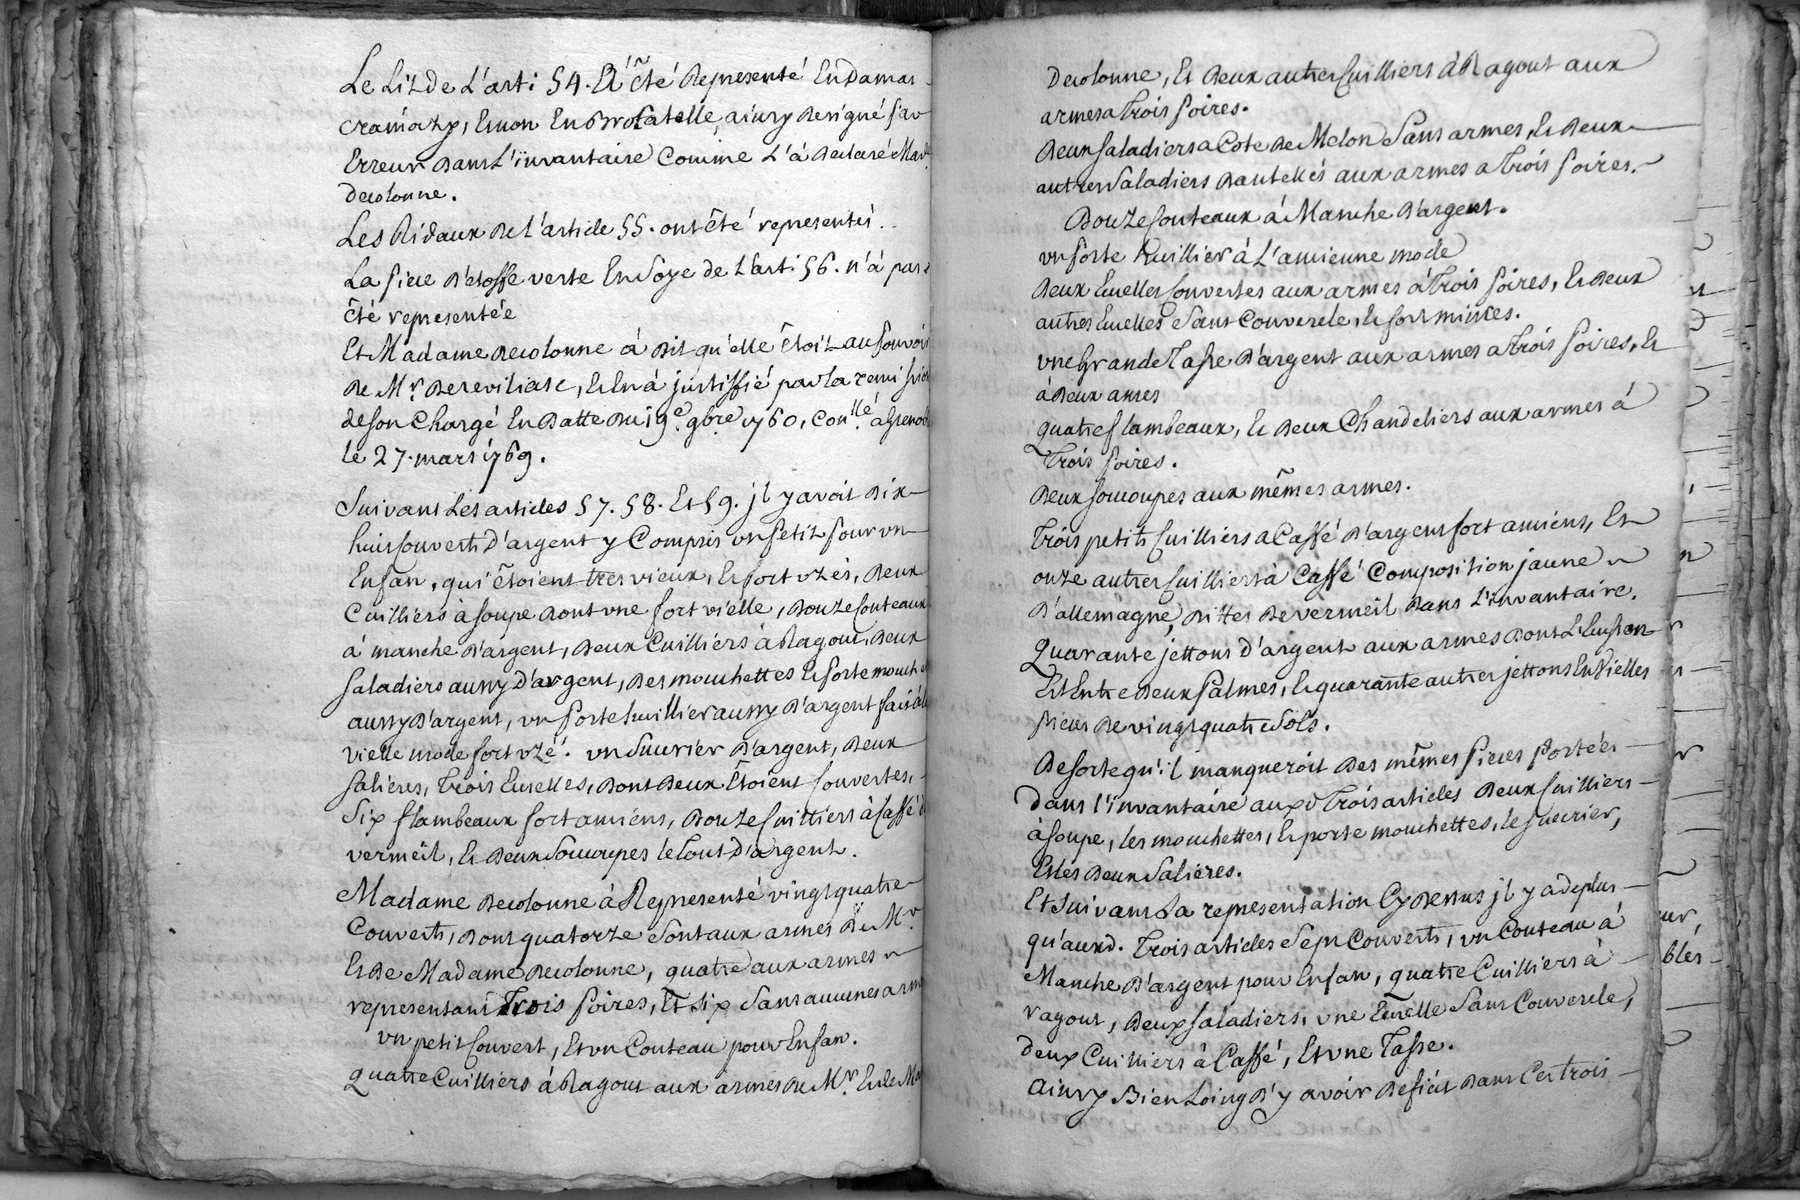 Le Lit de L'arti 54. Et êté Representé En Damas
cramoizy, Et non En Brocatelle, ainsy Designé par
Erreur Dans L'invantaire Comme L'á Declaré Made
Decolonne.
Les Ridaux De L'article 55. ont êté representés.
La piece D'etoffe verte En Soye de L'arti 56. n'á pas
êté representée
Et Madame Decolonne á Dit qu'elle êtoit au pouvoir
De Mr. Dereviliasc, Et En á justiffié par la remission
de son Chargé En Datte Du 19e. 9bre. 1760, Conllé. á Grenoble
le 27. mars 1769.
Suivant Les articles 57. 58. Et 59. jl y avoit Dix
huit Couverts D'argent y Compris un petit pour un
Enfan, qui êtoient tres vieux, Et fort uzés, Deux
Cuilliers à soupe Dont une fort vielle, Douze Couteaux
á manche D'argent, Deux Cuilliers à Ragout, Deux
Saladiers aussy D'argent, Des mouchettes Et porte mouchettes
aussy D'argent, un porte huillier aussy D'argent fait á la
vielle mode fort uzé. un Sucrier D'argent, Deux
Salieres, Trois Ecuelles, Dont Deux Etoient Couvertes,
Six flambeaux fort anciens, Douze Cuilliers à Caffé de
vermeil, Et Deux Soucoupes le tout D'argent.
Madame Decolonne á Representé vingt quatre
Couverts, Dont quatorze Sont aux armes De Mr.
Et De Madame Decolonne, quatre aux armes
representant Trois poires, Et Six Sans aucunes armes
un petit Couvert, Et un Couteau pour Enfan.
Quatre Cuilliers á Ragout aux armes De Mr. Et de Made
Decolonne, Et Deux autres Cuilliers á Ragout aux
armes a Trois poires.
Deux Saladiers a Cote De Melon Sans armes, Et Deux
autres Saladiers Dantellés aux armes a Trois poires.
Douze Couteaux á Manche D'argent.
un porte huillier á L'ancienne mode
Deux Ecuelles Couvertes aux armes á Trois poires, Et Deux
autres Ecuelles Sans Couvercle, Et fort minces.
une Grande Tasse D'argent aux armes a Trois poires, Et
á Deux anses
quatre flambeaux, Et Deux Chandeliers aux armes á
Trois poires.
Deux Soucoupes aux mêmes armes.
Trois petits Cuilliers a Caffé D'argent fort anciens, Et
onze autres Cuilliers à Caffé Composition jaune
D'allemagne, Dittes De vermeil Dans L'invantaire.
Quarante jettons D'argent aux armes Dont L'Ecusson
Est Entre Deux palmes, Et quarante autres jettons En vielles
pieces De vingt quatre Sols.
De sorte qu'il manqueroit Des mêmes pieces portées
dans l'invantaire auxd Trois articles Deux Cuilliers
à Soupe, les mouchettes, Et porte mouchettes, le Sucrier,
Et les Deux Salieres.
Et suivant La representation Cy Dessus jl y a de plus
qu'auxd. Trois articles Sept Couverts, un Couteau á
Manche D'argent pour Enfan, quatre Cuilliers à
ragout, Deux Saladiers, une Ecuelle Sans Couvercle,
deux Cuilliers á Caffé, Et une Tasse.
Ainsy Bien Loing D'y avoir Deficit Dans Ces trois
ur,
bles